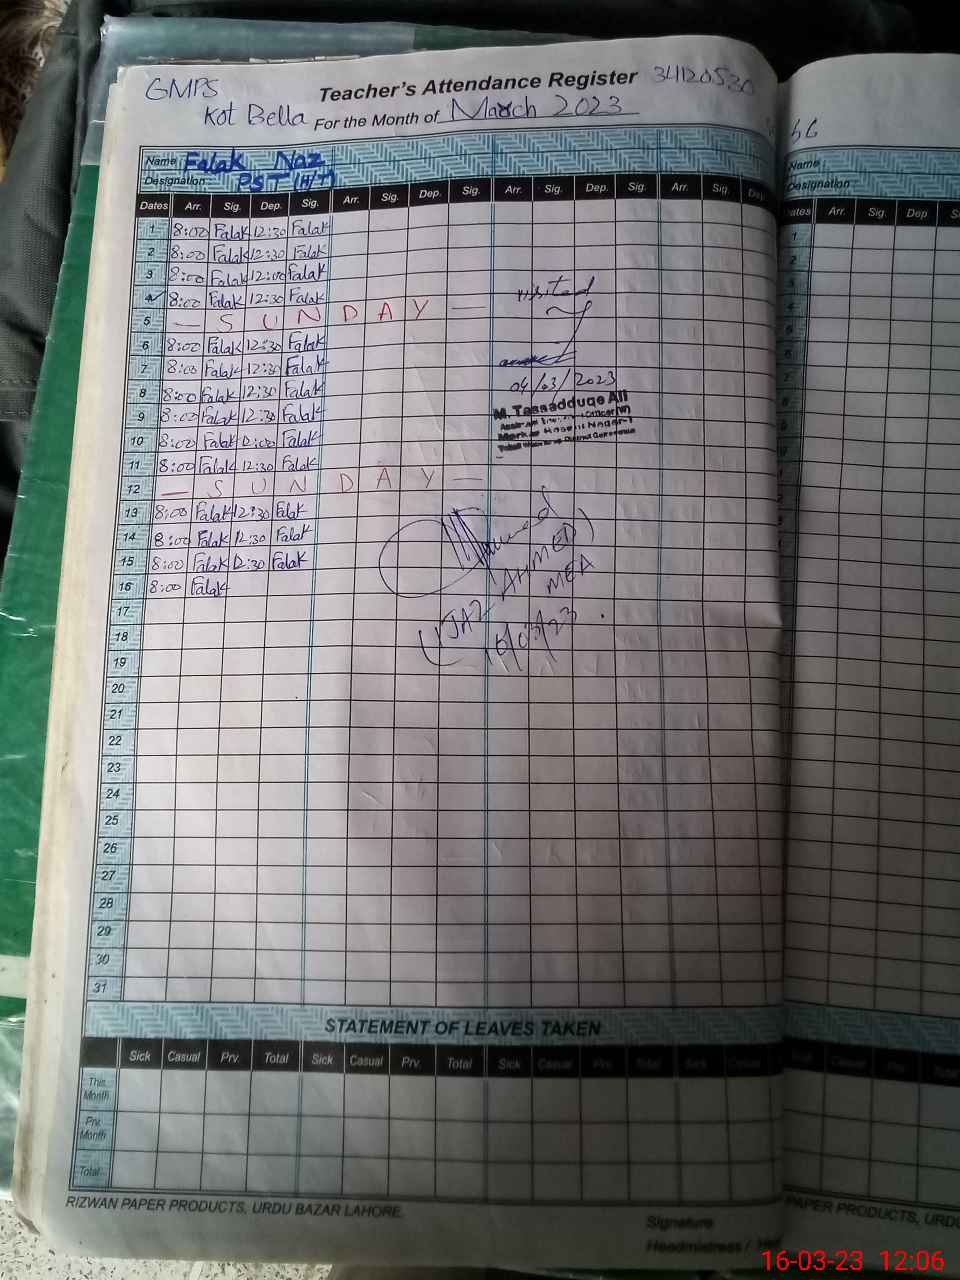 GMPS Teacher's Attendance Register 34120530
Kot Bella For the Month of March 2023
Name : Falak Naz
Designation : PST (H/T)
Dates Arr. Sig. Dep. Sig. Arr. Sig. Dep. Sig. Arr. Sig. Dep. Sig. Arr. Sig. Dep.
1 8:00 Falak 12:30 Falak
2 8:00 Falak 12:30 Falak
3 8:00 Falak 12:00 Falak
4 8:00 Falak 12:30 Falak
5 — S U N D A Y —
6 8:00 Falak 12:30 Falak
7 8:00 Falak 12:30 Falak
8 8:00 Falak 12:30 Falak
9 8:00 Falak 12:30 Falak
10 8:00 Falak 12:00 Falak
11 8:00 Falak 12:30 Falak
12 — S U N D A Y —
13 8:00 Falak 12:30 Falak
14 8:00 Falak 12:30 Falak
15 8:00 Falak 12:30 Falak
16 8:00 Falak
17
18
19
20
21
22
23
24
25
26
27
28
29
30
31
visited
04/03/2023
M. Tassadduqe Ali
AHMED)
MEA
16/03/23
STATEMENT OF LEAVES TAKEN
Sick Casual Prv. Total Sick Casual Prv. Total Sick Casual Prv. Total Sick Casual
This Month
Prv. Month
Total
RIZWAN PAPER PRODUCTS, URDU BAZAR LAHORE.
Signature
Headmistress /
Name :
Designation
Dates Arr. Sig. Dep
1
2
3
PAPER PRODUCTS, URDU
16-03-23 12:06